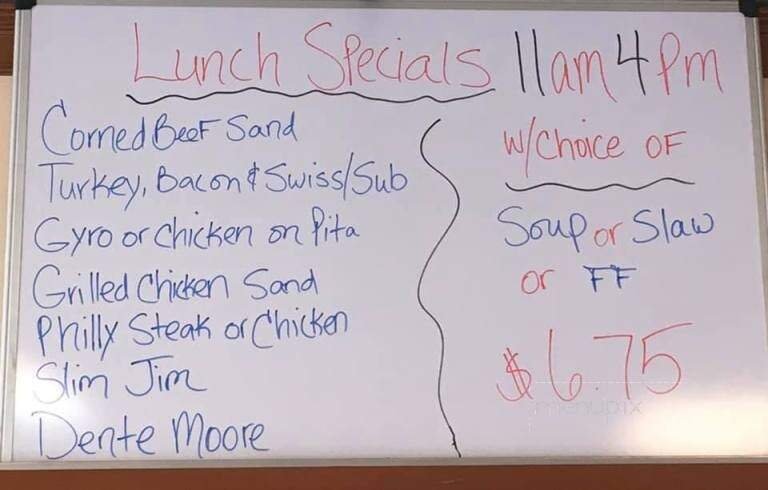 Lunch Specials 11am 4pm
Corned Beef Sand
Turkey, Bacon & Swiss/Sub
Gyro or Chicken on Pita
Grilled Chicken Sand
Philly Steak or Chicken
Slim Jim
Dente Moore
w/Choice OF
Soup or Slaw
or FF
$6.75
menupix